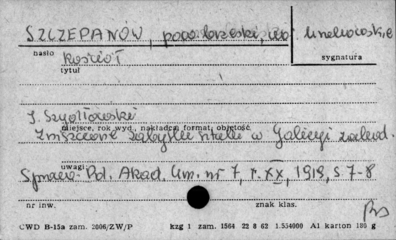 SZCZEPANÓW, pow. brzeski, woj. krakowskie
hasło
sygnatura
kościół
tytuł
J. Szydłowski
miejsce, rok wyd., nakładca, format, objętość
Zniszczone zabytki sztuki w Galicyi zachod.
uwagi
Sprawa. Pol. Akad. Um. nr 7, r. XX, 1918, s 7-8
nr inw.
znak klas.
CWD B-15a zam. 2006/ZW/P kzg 1 zam. 1564 22 8 62 1.534000 A1 karton 180 g